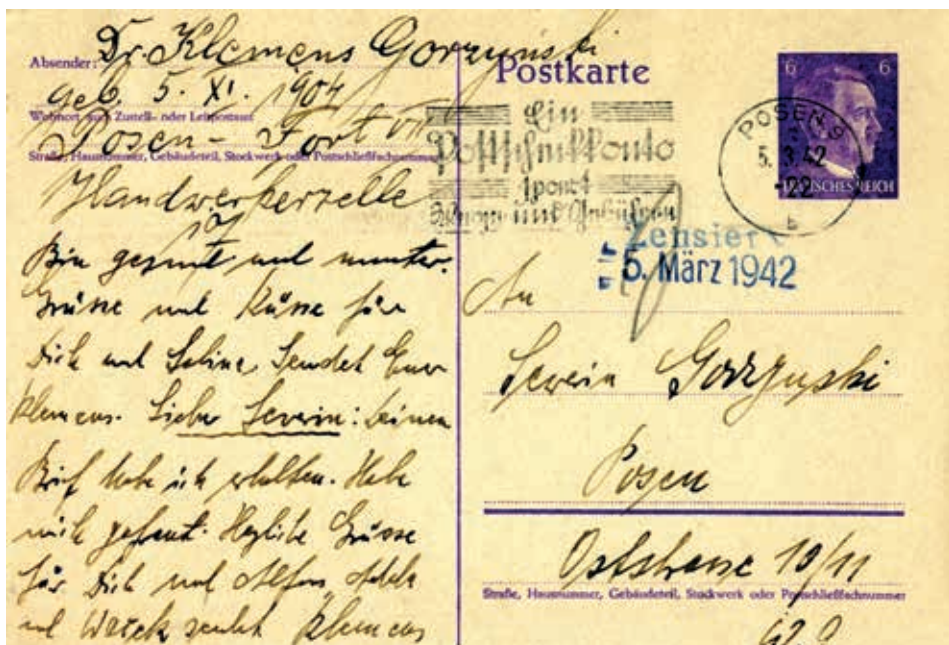 Absender: Dr. Klemens Gorzyński
geb. 5. XI. 1904
Wohnort, auch Zustell- oder Leitpostamt
Posen - Fort VII
Straße, Hausnummer, Gebäudeteil, Stockwerk oder Postschließfachnummer
Handwerkerzelle
Bin gesund und munter.
Grüsse und Küsse für
Dich und Sabine sendet Euer
Klemens. Lieber Severin: Deinen
Brief habe ich erhalten. Habe
mich gefreut. Herzliche Grüsse
für Dich und Alfons, Adele
und Wacek sendet Klemens
Postkarte
6 6
DEUTSCHES REICH
POSEN 9
5.3.42
-22
b
Ein
Postscheckkonto
spart
Wege und Gebühren
Zensiert
5. März 1942
An
Severin Gorzynski
Posen
Oststrasse 10/11
Straße, Hausnummer, Gebäudeteil, Stockwerk oder Postschließfachnummer